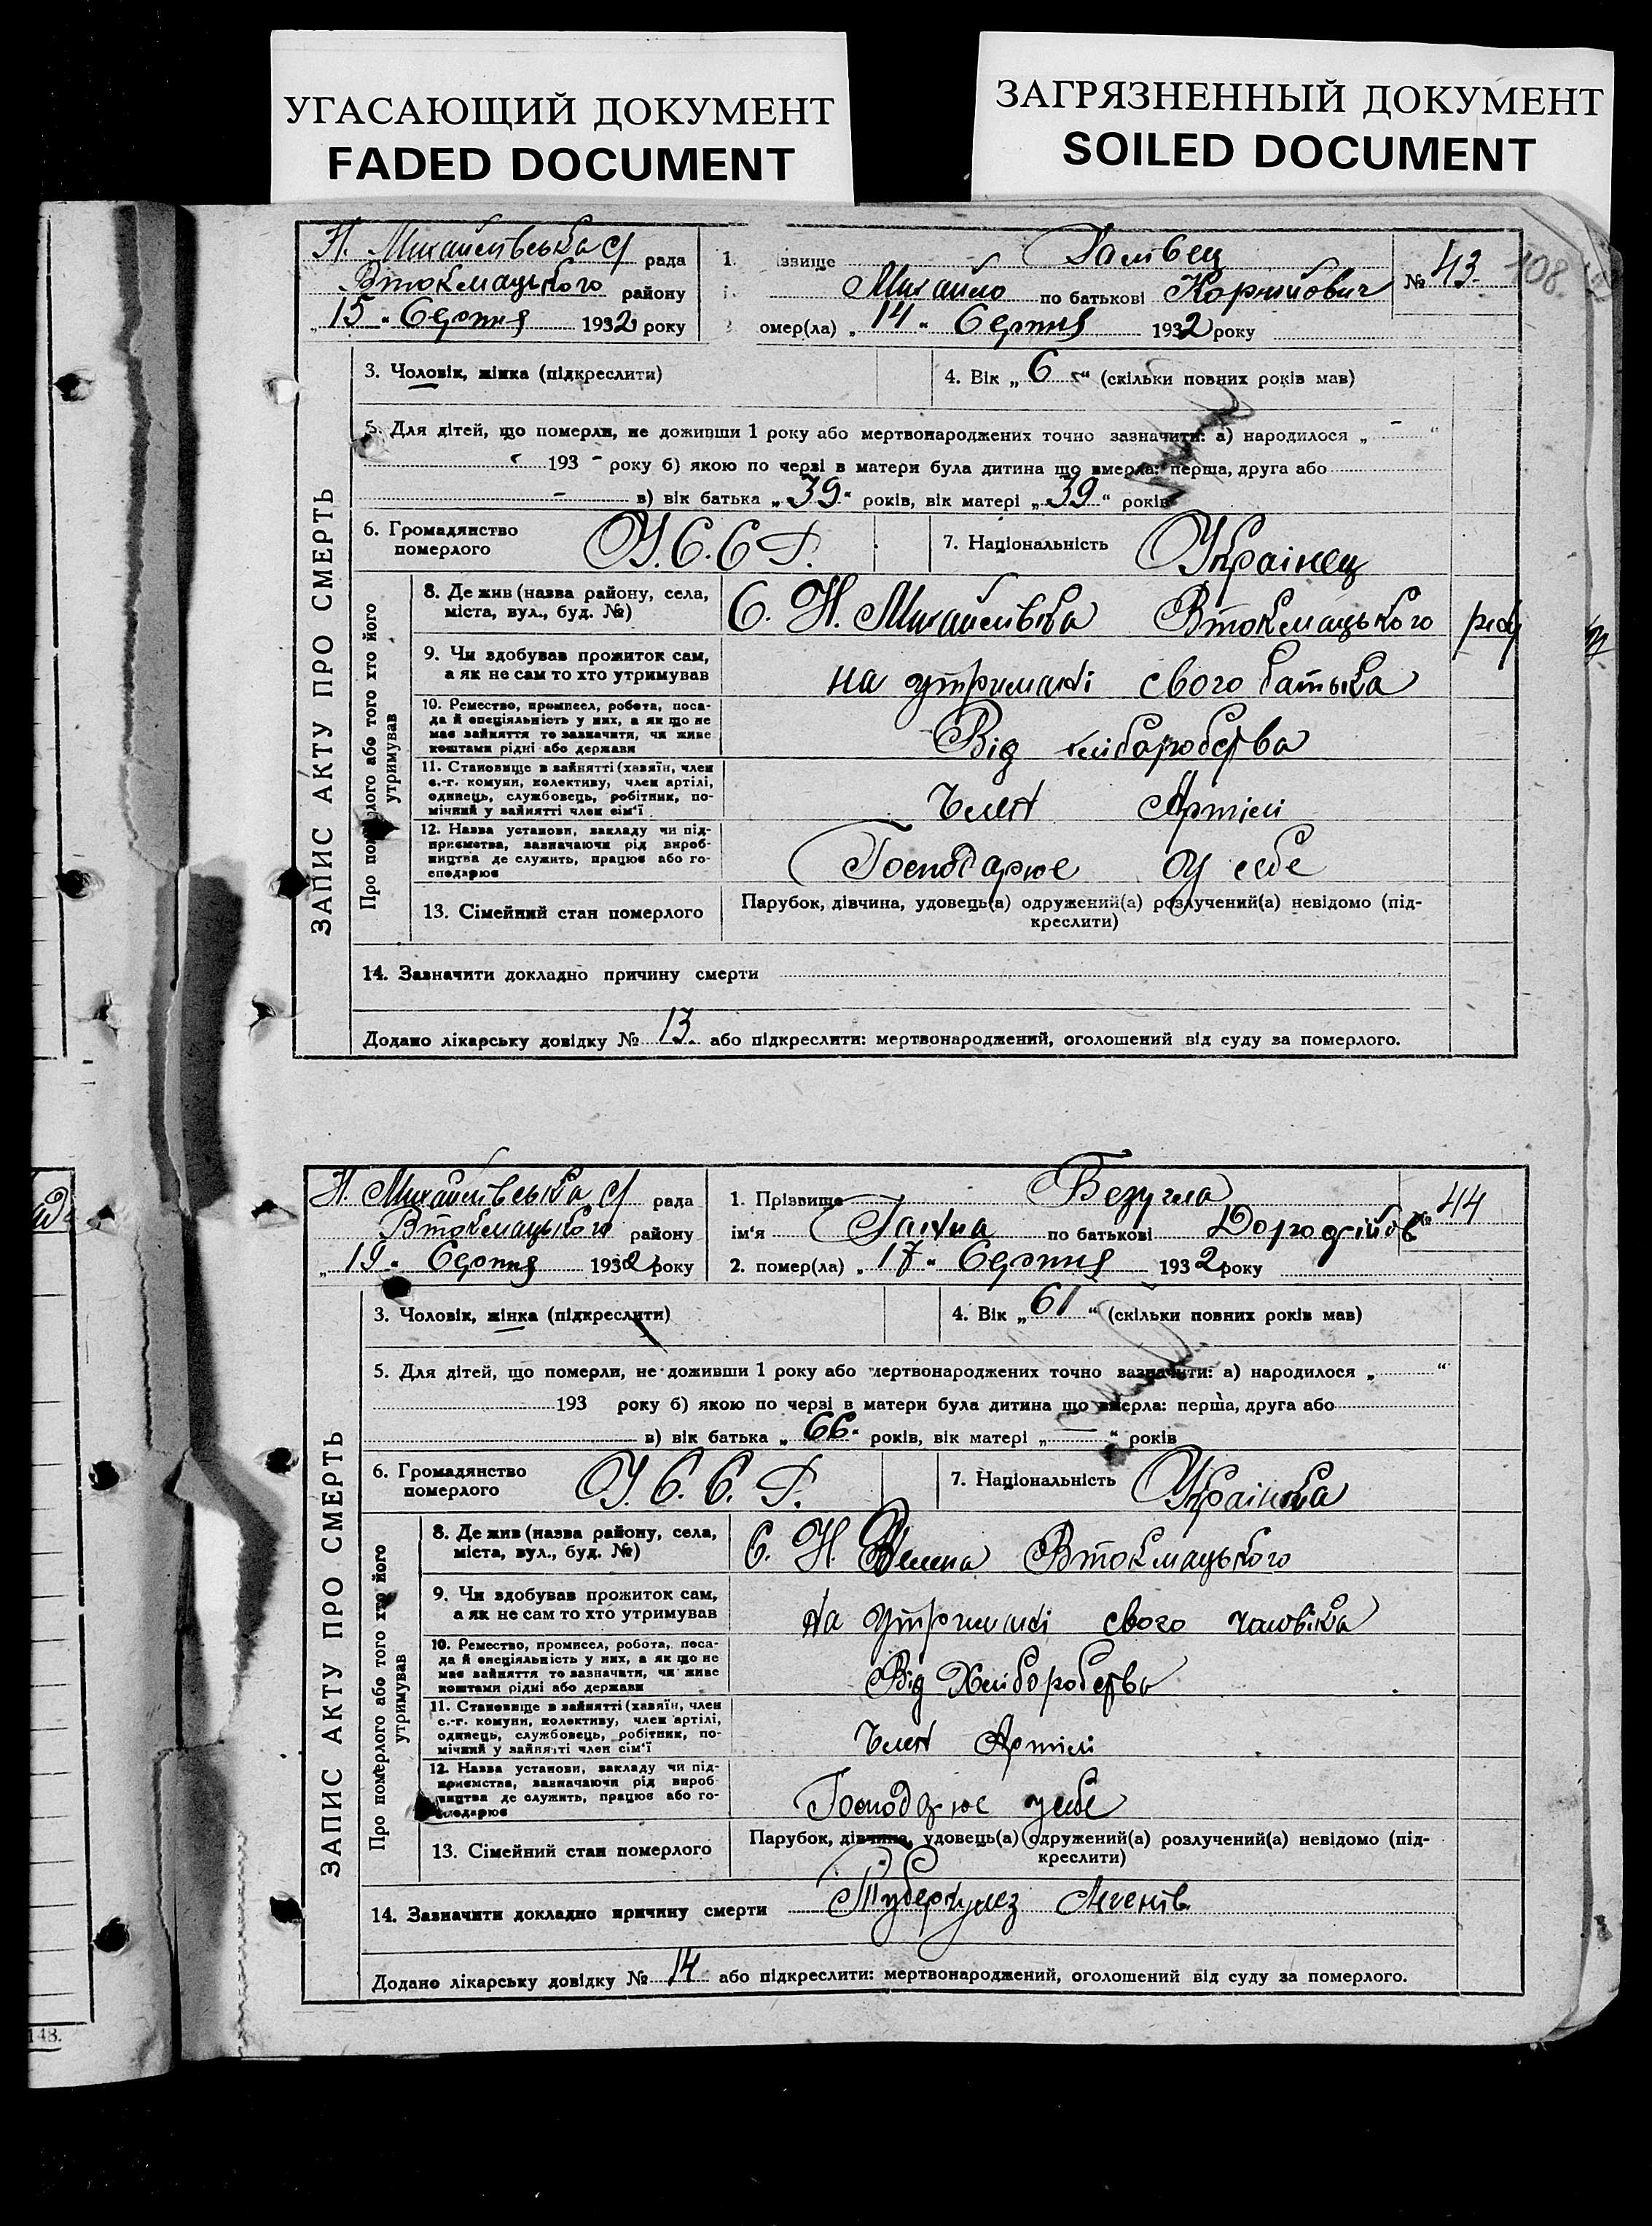 УГАСАЮЩИЙ ДОКУМЕНТ
FADED DOCUMENT
ЗАГРЯЗНЕННЫЙ ДОКУМЕНТ
SOILED DOCUMENT
108.
Н. Михайлівська с/ рада
Втокмацького району
„15" Серпня 1932 року
1. ізвище
Михайло по батькові Корнійович
омер(ла) „14" Серпня 1932 року
№ 43
ЗАПИС АКТУ ПРО СМЕРТЬ
3. Чоловік, жінка (підкреслити)
4. Вік „6" (скільки повних років мав)
5. Для дітей, що померли, не доживши 1 року або мертвонароджених точно зазначити: а) народилося „ - "
193 - року б) якою по черзі в матери була дитина що вмерла: перша, друга або
- в) вік батька „39" років, вік матері „39" років
6. Громадянство померлого
У.С.С.Р.
7. Національність Українец
Про померлого або того хто його утримував
8. Де жив (назва району, села, міста, вул., буд. №)
С. Н. Михайлівка Втокмацького рай
9. Чи здобував прожиток сам, а як не сам то хто утримував
на утримані свого батька
10. Ремество, промисел, робота, посада й спеціяльність у них, а як що не має зайняття то зазначити, чи живе коштами рідні або держави
Від хліборобства
11. Становище в зайнятті (хазяїн, член с.-г. комуни, колективу, член артілі, одинець, службовець, робітник, помічний у зайнятті член сім'ї
Член Артілі
12. Назва установи, закладу чи підприємства, зазначаючи рід виробництва де служить, працює або господарює
Господарює у себе
13. Сімейний стан померлого
Парубок, дівчина, удовець(а) одружений(а) розлучений(а) невідомо (підкреслити)
14. Зазначити докладно причину смерти
Додано лікарську довідку № 13. або підкреслити: мертвонароджений, оголошений від суду за померлого.
Н. Михайлівська с/ рада
Втокмацького району
„19" Серпня 1932 року
1. Прізвище Безугла
ім'я Ганна по батькові Дородейов
2. помер(ла) „17" Серпня 1932 року
№ 44
ЗАПИС АКТУ ПРО СМЕРТЬ
3. Чоловік, жінка (підкреслити)
4. Вік „61" (скільки повних років мав)
5. Для дітей, що померли, не доживши 1 року або мертвонароджених точно зазначити: а) народилося „ "
193 року б) якою по черзі в матери була дитина що вмерла: перша, друга або
в) вік батька „66" років, вік матері „ — " років
6. Громадянство померлого
У.С.С.Р.
7. Національність Українка
Про померлого або того хто його утримував
8. Де жив (назва району, села, міста, вул., буд. №)
С. Н. Втокмацького
9. Чи здобував прожиток сам, а як не сам то хто утримував
на утримані свого чоловіка
10. Ремество, промисел, робота, посада й спеціяльність у них, а як що не має зайняття то зазначати, чи живе коштами рідні або держави
Від Хліборобства
11. Становище в зайнятті (хазяїн, член с.-г. комуни, колективу, член артілі, одинець, службовець, робітник, помічний у зайнятті член сім'ї
Член Артілі
12. Назва установи, закладу чи підприємства, зазначаючи рід виробництва де служить, працює або господарює
Господарює у себе
13. Сімейний стан померлого
Парубок, дівчина, удовець(а) одружений(а) розлучений(а) невідомо (підкреслити)
14. Зазначити докладно причину смерти Туберкульез Легенів
Додано лікарську довідку № 14 або підкреслити: мертвонароджений, оголошений від суду за померлого.
148.